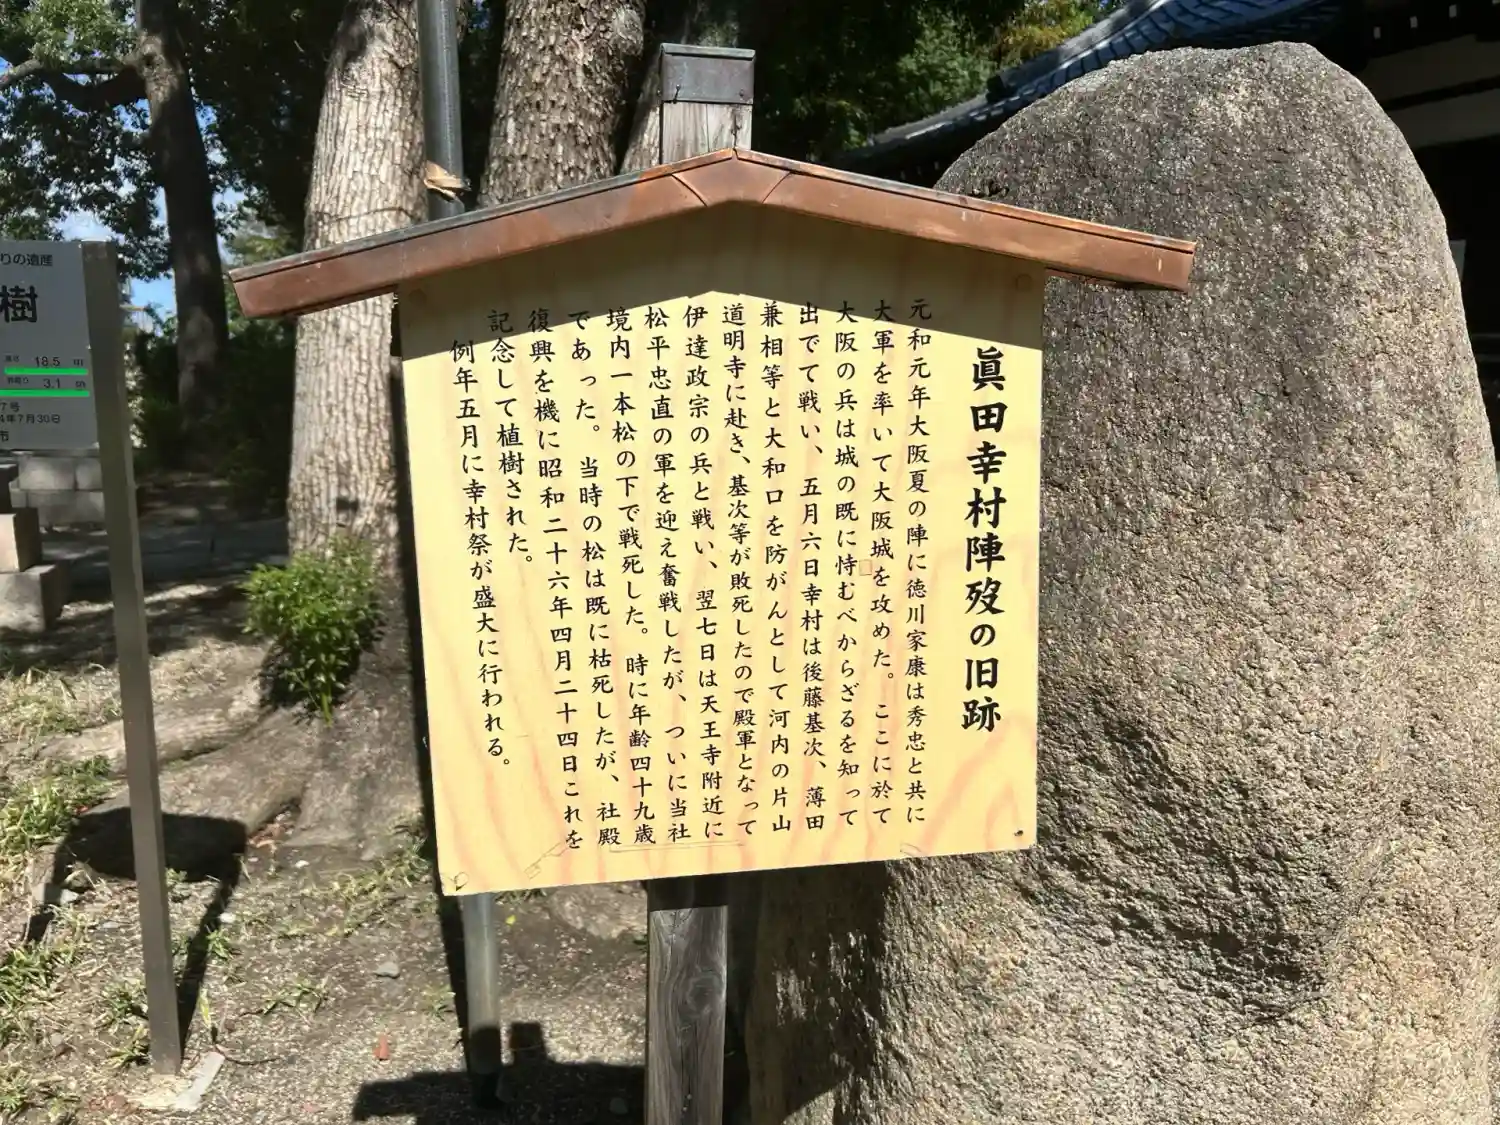 眞田幸村陣歿の旧跡
元和元年大阪夏の陣に徳川家康は秀忠と共に
大軍を率いて大阪城を攻めた。ここに於て
大阪の兵は城の既に恃むべからざるを知って
出でて戦い、五月六日幸村は後藤基次、薄田
兼相等と大和口を防がんとして河内の片山
道明寺に赴き、基次等が敗死したので殿軍となって
伊達政宗の兵と戦い、翌七日は天王寺附近に
松平忠直の軍を迎え奮戦したが、ついに当社
境内一本松の下で戦死した。時に年齢四十九歳
であった。当時の松は既に枯死したが、社殿
復興を機に昭和二十六年四月二十四日これを
記念して植樹された。
例年五月に幸村祭が盛大に行われる。
りの遺産
樹
18.5
3.1
7号
4年7月30日
市